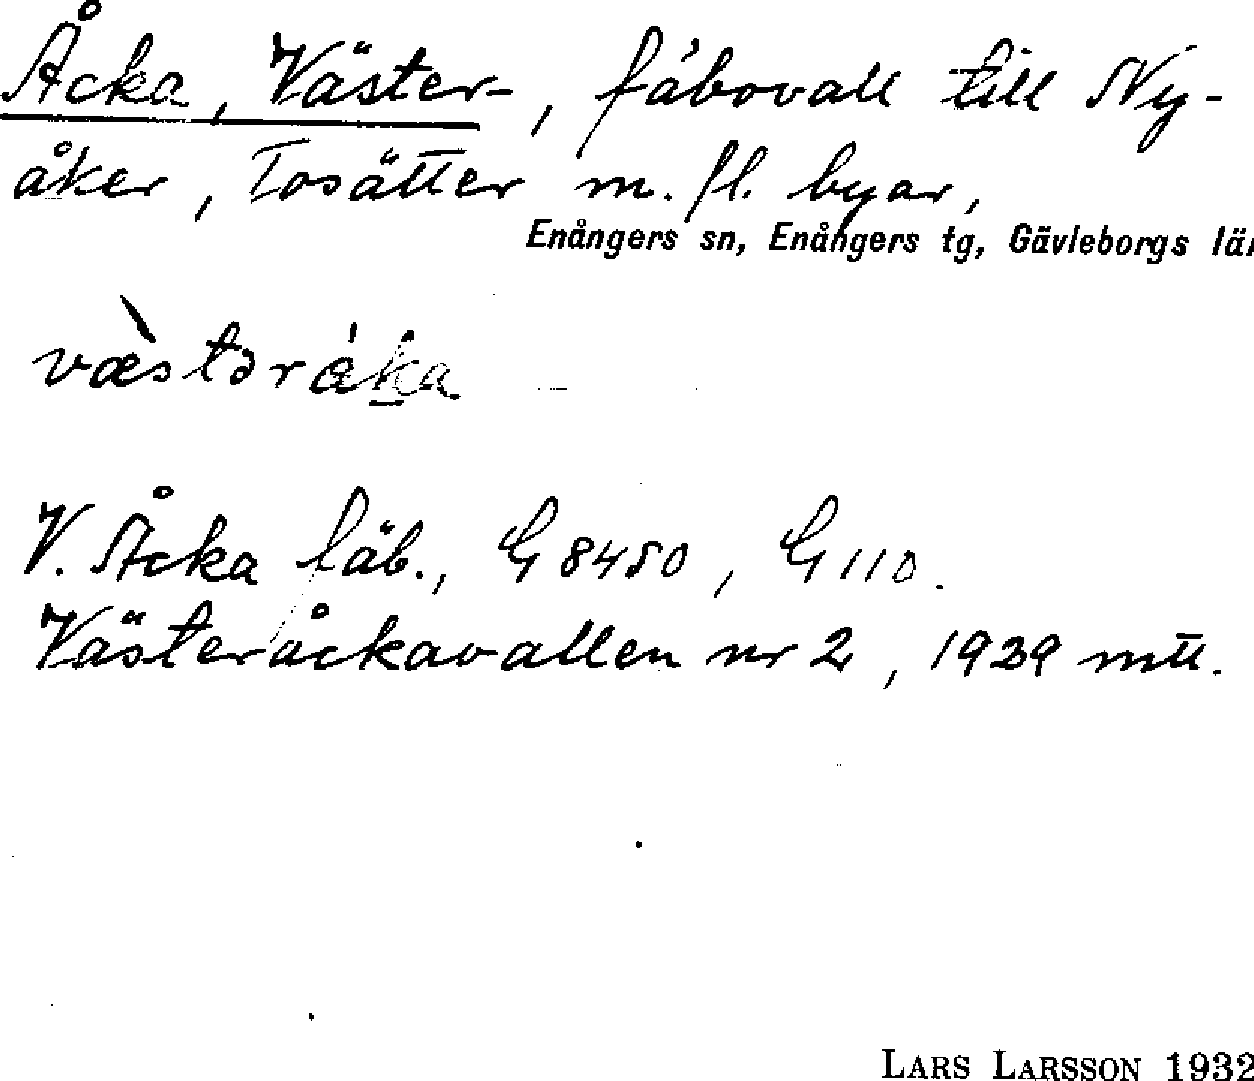 Åcka, Väster-, fäbovall till Ny-
åker, Tosätter m. fl. byar,
Enångers sn, Enångers tg, Gävleborgs län
V. Åcka fäb., G 8450, G 110.
Västeråckavallen nr 2, 1939 mtl.
LARS LARSSON 1932